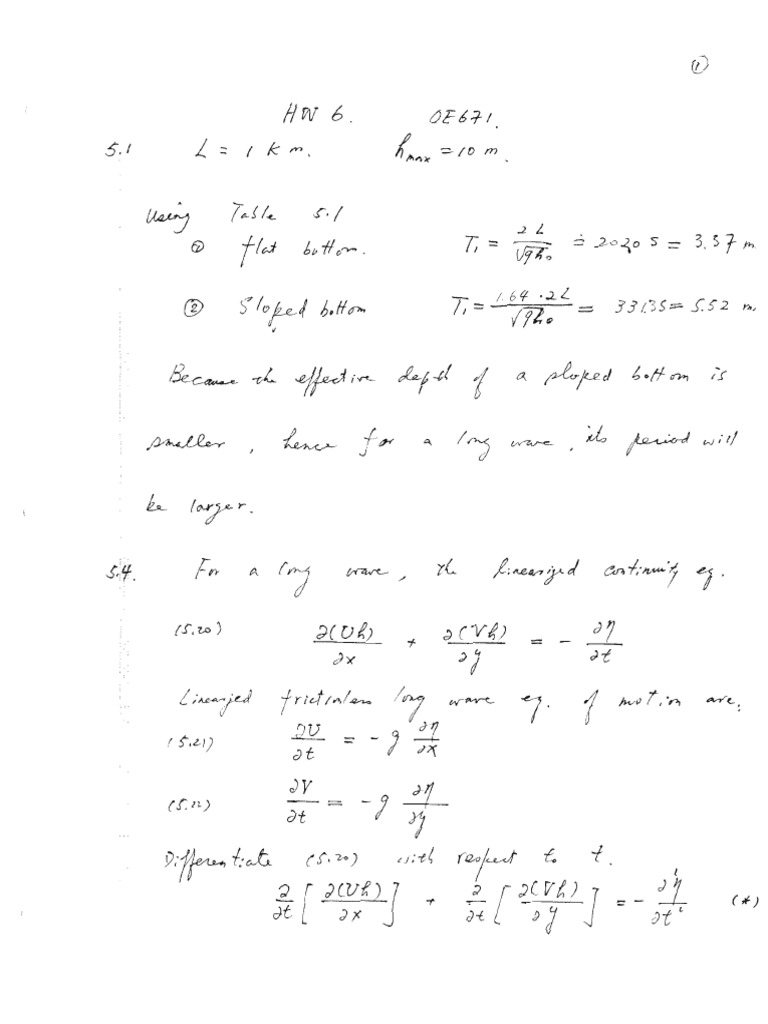 ①
HW 6. OE671.
5.1 L = 1 Km. h_max = 10 m.
Using Table 5.1
① flat bottom. T₁ = 2L/√(gh₀) ≐ 202.0 s = 3.37 m
② Sloped bottom T₁ = 1.64 · 2L/√(gh₀) = 331.3 s = 5.52 m.
Because the effective depth of a sloped bottom is
smaller, hence for a long wave, its period will
be larger.
5.4. For a long wave, the linearized continuity eq.
(5.20) ∂(Uh)/∂x + ∂(Vh)/∂y = - ∂η/∂t
Linearized frictionless long wave eq. of motion are.
(5.21) ∂U/∂t = - g ∂η/∂x
(5.22) ∂V/∂t = - g ∂η/∂y
Differentiate (5.20) with respect to t.
∂/∂t [∂(Uh)/∂x] + ∂/∂t [∂(Vh)/∂y] = - ∂²η/∂t² (*)